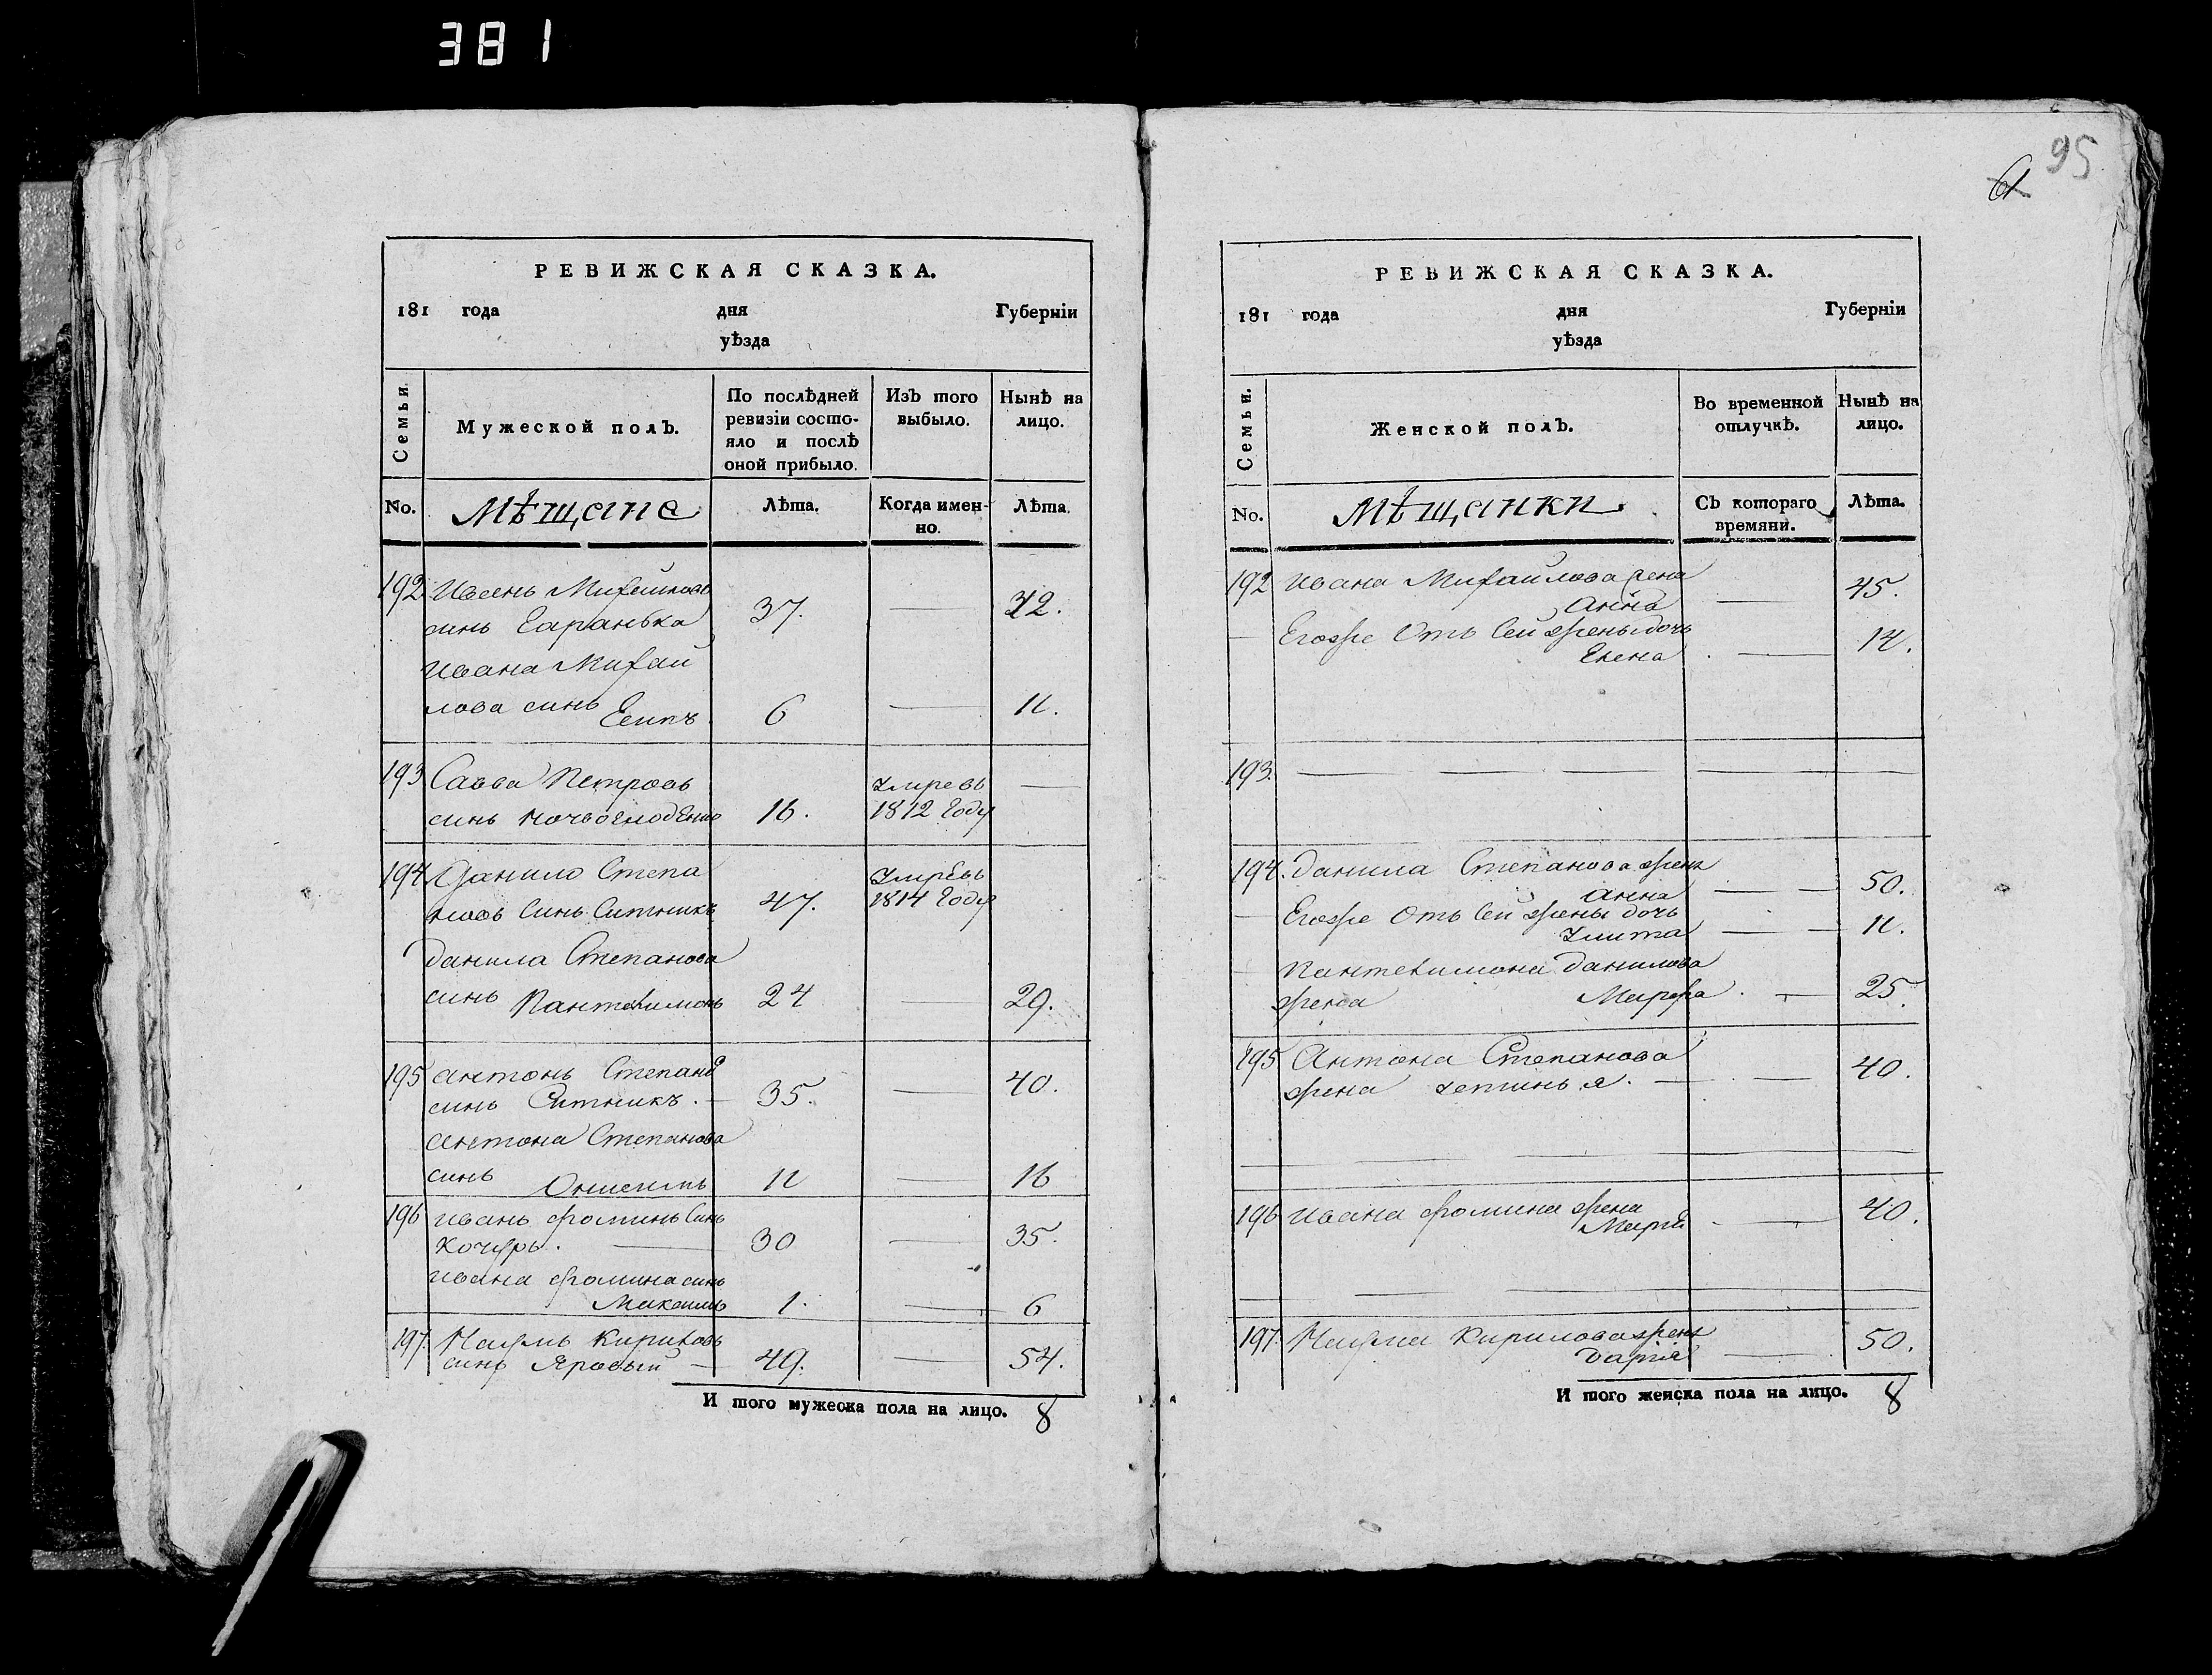 381
РЕВИЖСКАЯ СКАЗКА.
181 года дня Губерніи
уѣзда
Семьи
Мужеской полъ.
По послѣдней ревизіи состо-
яло и послѣ
оной прибыло.
Изъ того
выбыло.
Нынѣ на
лицо.
No. Мѣщане Лѣта. Когда имен-
но. Лѣта.
192 Иванъ Михайловъ
синъ Таранька 37. 42.
Ивана Михай
лова синъ Есипъ 6 11.
193 Савва Петровъ Умревъ
синъ 16. 1812 году
194 Данило Степа Умревъ
новъ Синъ Ситникъ 47. 1814 году
Данила Степанова
синъ Пантелимонъ 24 29.
195 Антонъ Степано 40.
синъ Ситникъ. 35.
Антона Степанова
синъ Онисимъ 11 16
196 Иванъ Фоминъ Синъ
Кочуръ. 30 35.
Ивана Фомина синъ
Максимъ 1. 6
197. Наумъ Кириловъ
синъ Яровый 49. 54.
И того мужеска пола на лицо. 8
95
61
РЕВИЖСКАЯ СКАЗКА.
181 года дня Губерніи
уѣзда
Семьи.
Женской полъ.
Во временной
отлучкѣ.
Нынѣ на
лицо.
No. Мѣщанки Съ котораго
времяни. Лѣта.
192 Ивана Михайлова жена
Анна 45.
Егоже Отъ Сей жены дочь
Елена 14.
193.
194. Данила Степанова жена
Анна 50.
Егоже Отъ Сей жены дочь
Улита 11.
Пантелимона Данилова
жена Марфа 25.
195 Антона Степанова
жена Устинья. 40.
196 Ивана Фомина жена
Марія 40.
197. Наума Кирилова жена
Дарія 50.
И того женска пола на лицо. 8